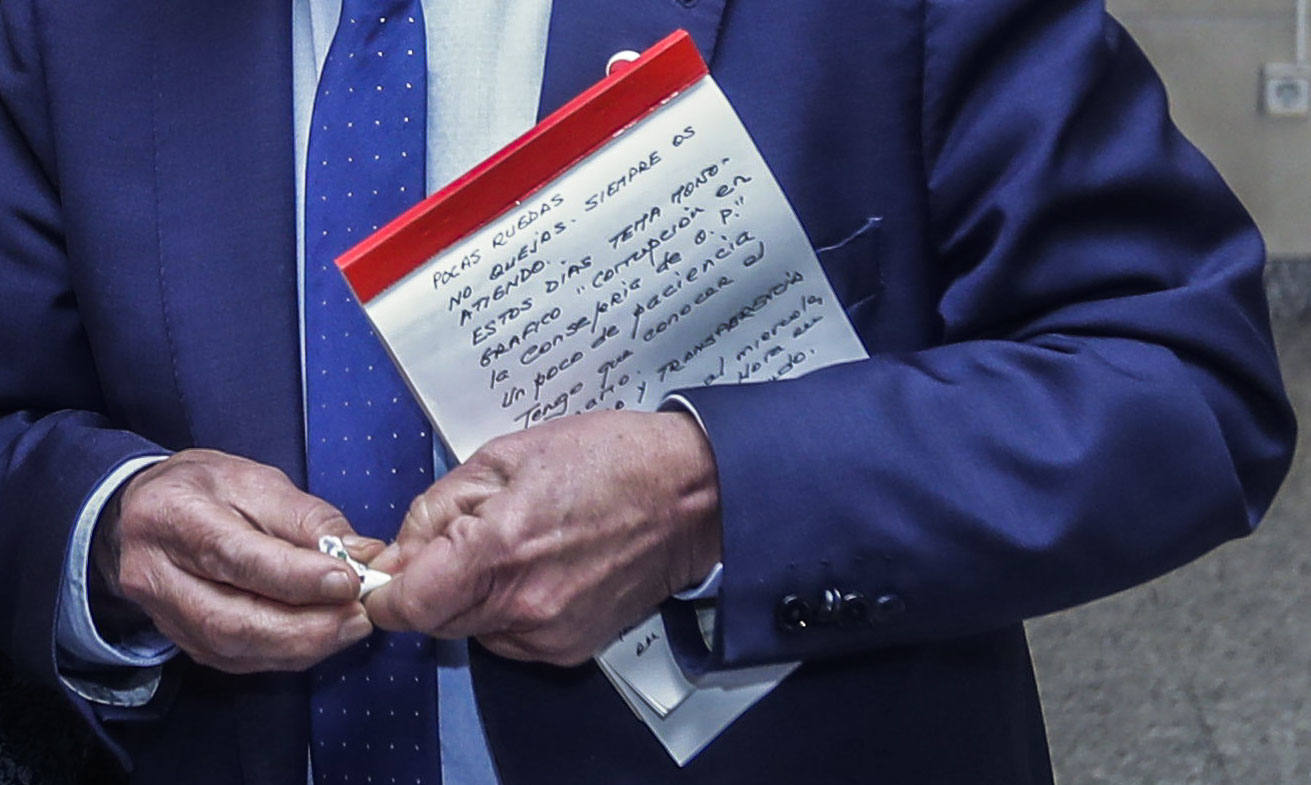 POCAS RUEDAS
NO QUEJAS. SIEMPRE OS
ATIENDO.
ESTOS DÍAS TEMA MONO-
GRAFICO "CORRUPCIÓN en
la Consejería de O.P."
Un poco de paciencia
Tengo que conocer el
y TRANSPARENCIA
al miercoles,
Hora en
en